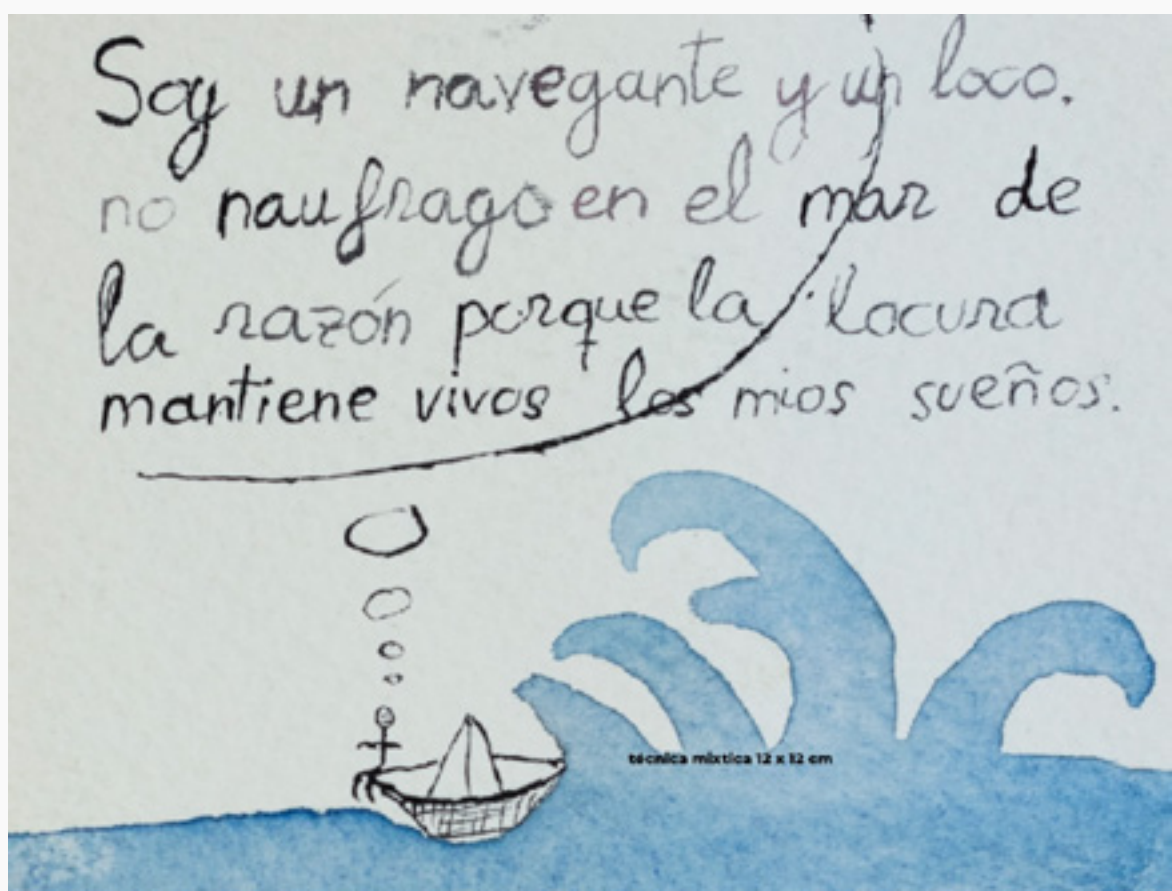 Soy un navegante y un loco.
no naufrago en el mar de
la razón porque la locura
mantiene vivos los mios sueños.
técnica mixtica 12 x 12 cm